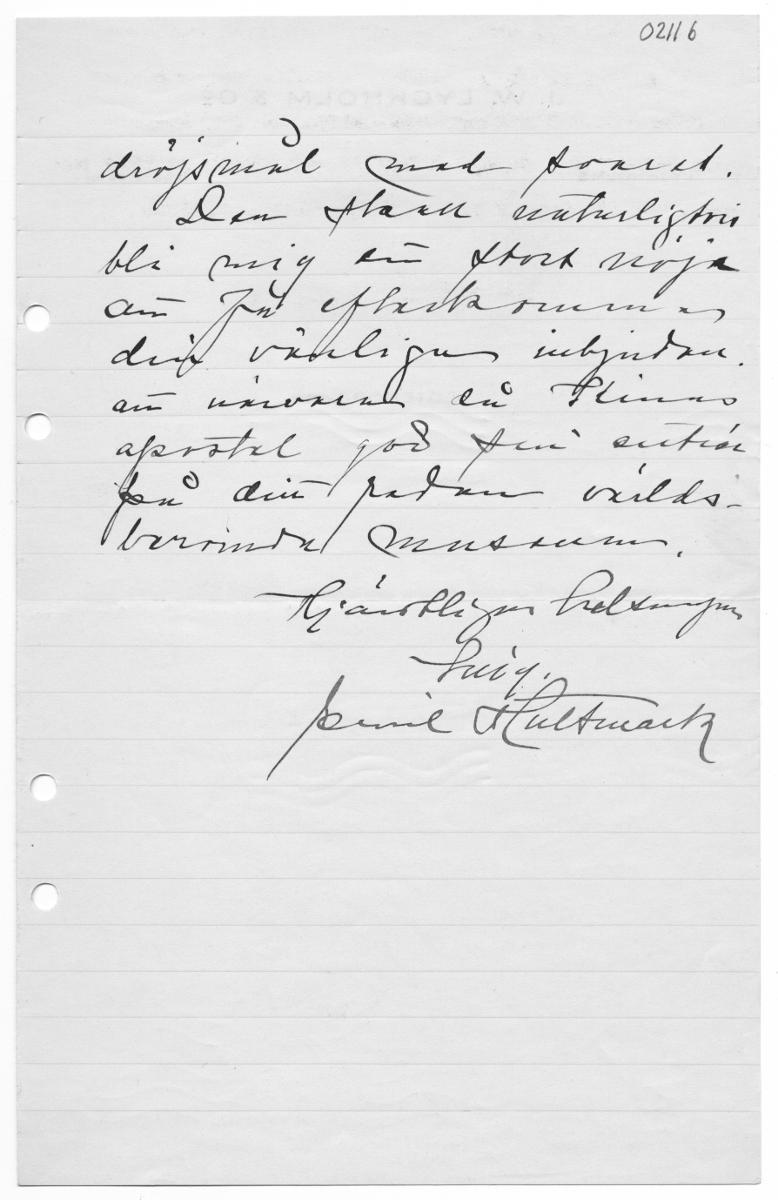 02116
dröjsmål med svaret.
Den skall naturligtvis
bli mig ett stort nöje
att få efterkomma
din vänliga inbjudan
att närvara då Kinas
apostel gör sin entrée
på ditt redan världs-
berömda museum.
Hjärtliga hälsningar
Emil Hultmark